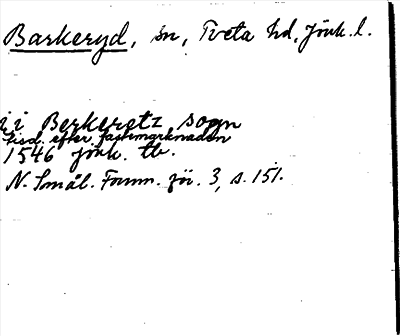 Barkeryd, sn, Tveta hd, Jönk. l.
i i Berkeretz sogn
tisd. efter fastingxmarknaden
1546 Jönk. tb.
N. Smål. Fornm. för. 3, s. 151.